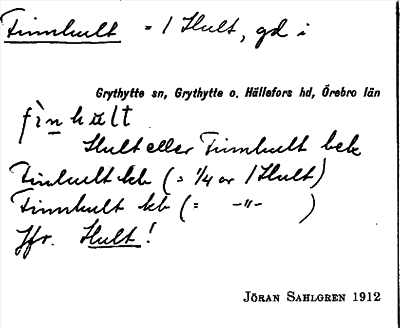 Finnhult = 1 Hult, gd i
Grythytte sn, Grythytte o. Hällefors hd, Örebro län
fìnhult
Hult eller Finnhult bek
Finhult kb (= 1/4 av 1 Hult)
Finnhult kb (= -"- )
Jfr. Hult!
JÖRAN SAHLGREN 1912